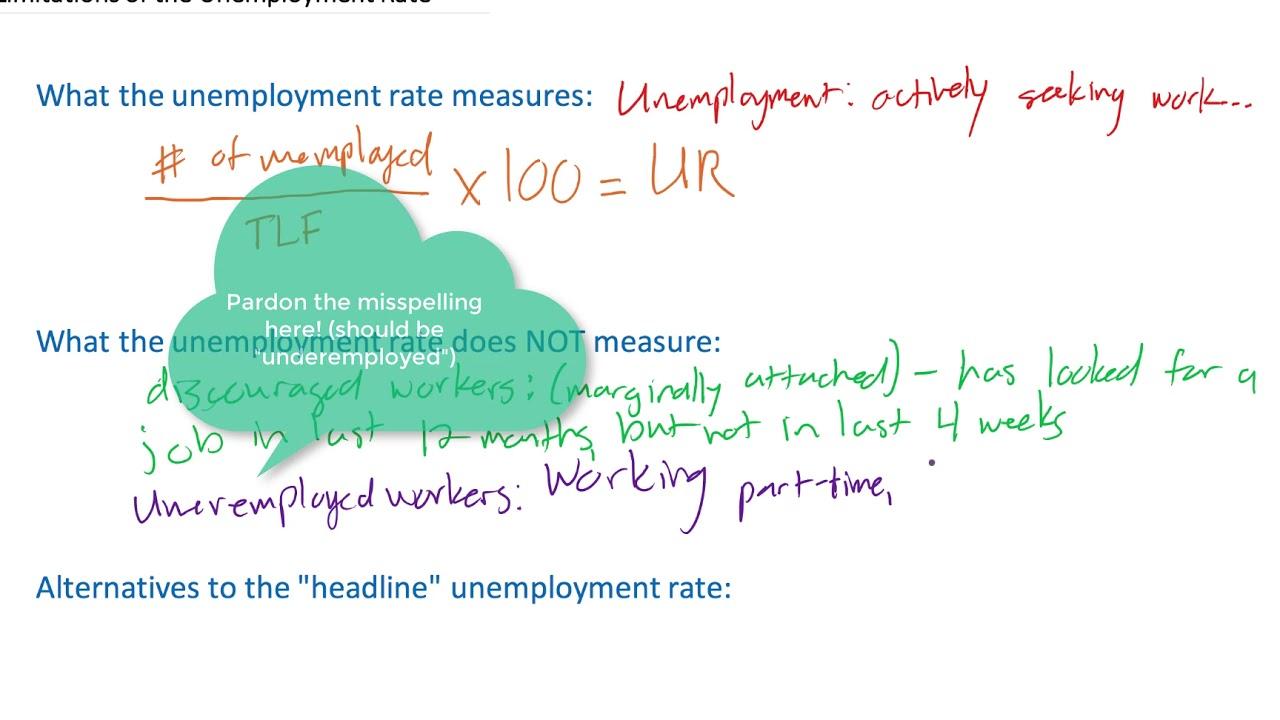 Limitations of the Unemployment Rate
What the unemployment rate measures: Unemployment: actively seeking work...
# of unemployed
x 100 = UR
TLF
Pardon the misspelling
here! (should be
"underemployed")
What the unemployment rate does NOT measure:
discouraged workers: (marginally attached) - has looked for a
job in last 12 months, but not in last 4 weeks
Uneremployed workers: Working part-time,
Alternatives to the "headline" unemployment rate: